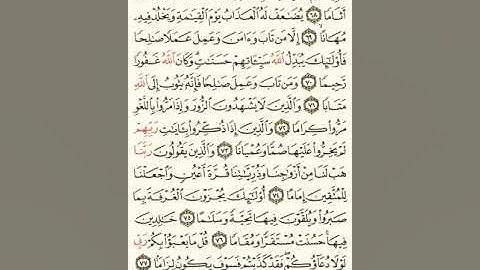 أَثَامًا ۝٦٨ يُضَٰعَفْ لَهُ ٱلْعَذَابُ يَوْمَ ٱلْقِيَٰمَةِ وَيَخْلُدْ فِيهِۦ
مُهَانًا ۝٦٩ إِلَّا مَن تَابَ وَءَامَنَ وَعَمِلَ عَمَلًا صَٰلِحًا
فَأُو۟لَٰٓئِكَ يُبَدِّلُ ٱللَّهُ سَيِّـَٔاتِهِمْ حَسَنَٰتٍ وَكَانَ ٱللَّهُ غَفُورًا
رَّحِيمًا ۝٧٠ وَمَن تَابَ وَعَمِلَ صَٰلِحًا فَإِنَّهُۥ يَتُوبُ إِلَى ٱللَّهِ
مَتَابًا ۝٧١ وَٱلَّذِينَ لَا يَشْهَدُونَ ٱلزُّورَ وَإِذَا مَرُّوا۟ بِٱللَّغْوِ
مَرُّوا۟ كِرَامًا ۝٧٢ وَٱلَّذِينَ إِذَا ذُكِّرُوا۟ بِـَٔايَٰتِ رَبِّهِمْ
لَمْ يَخِرُّوا۟ عَلَيْهَا صُمًّا وَعُمْيَانًا ۝٧٣ وَٱلَّذِينَ يَقُولُونَ رَبَّنَا
هَبْ لَنَا مِنْ أَزْوَٰجِنَا وَذُرِّيَّٰتِنَا قُرَّةَ أَعْيُنٍ وَٱجْعَلْنَا
لِلْمُتَّقِينَ إِمَامًا ۝٧٤ أُو۟لَٰٓئِكَ يُجْزَوْنَ ٱلْغُرْفَةَ بِمَا
صَبَرُوا۟ وَيُلَقَّوْنَ فِيهَا تَحِيَّةً وَسَلَٰمًا ۝٧٥ خَٰلِدِينَ
فِيهَا حَسُنَتْ مُسْتَقَرًّا وَمُقَامًا ۝٧٦ قُلْ مَا يَعْبَؤُا۟ بِكُمْ رَبِّى
لَوْلَا دُعَآؤُكُمْ فَقَدْ كَذَّبْتُمْ فَسَوْفَ يَكُونُ لِزَامًۢا ۝٧٧